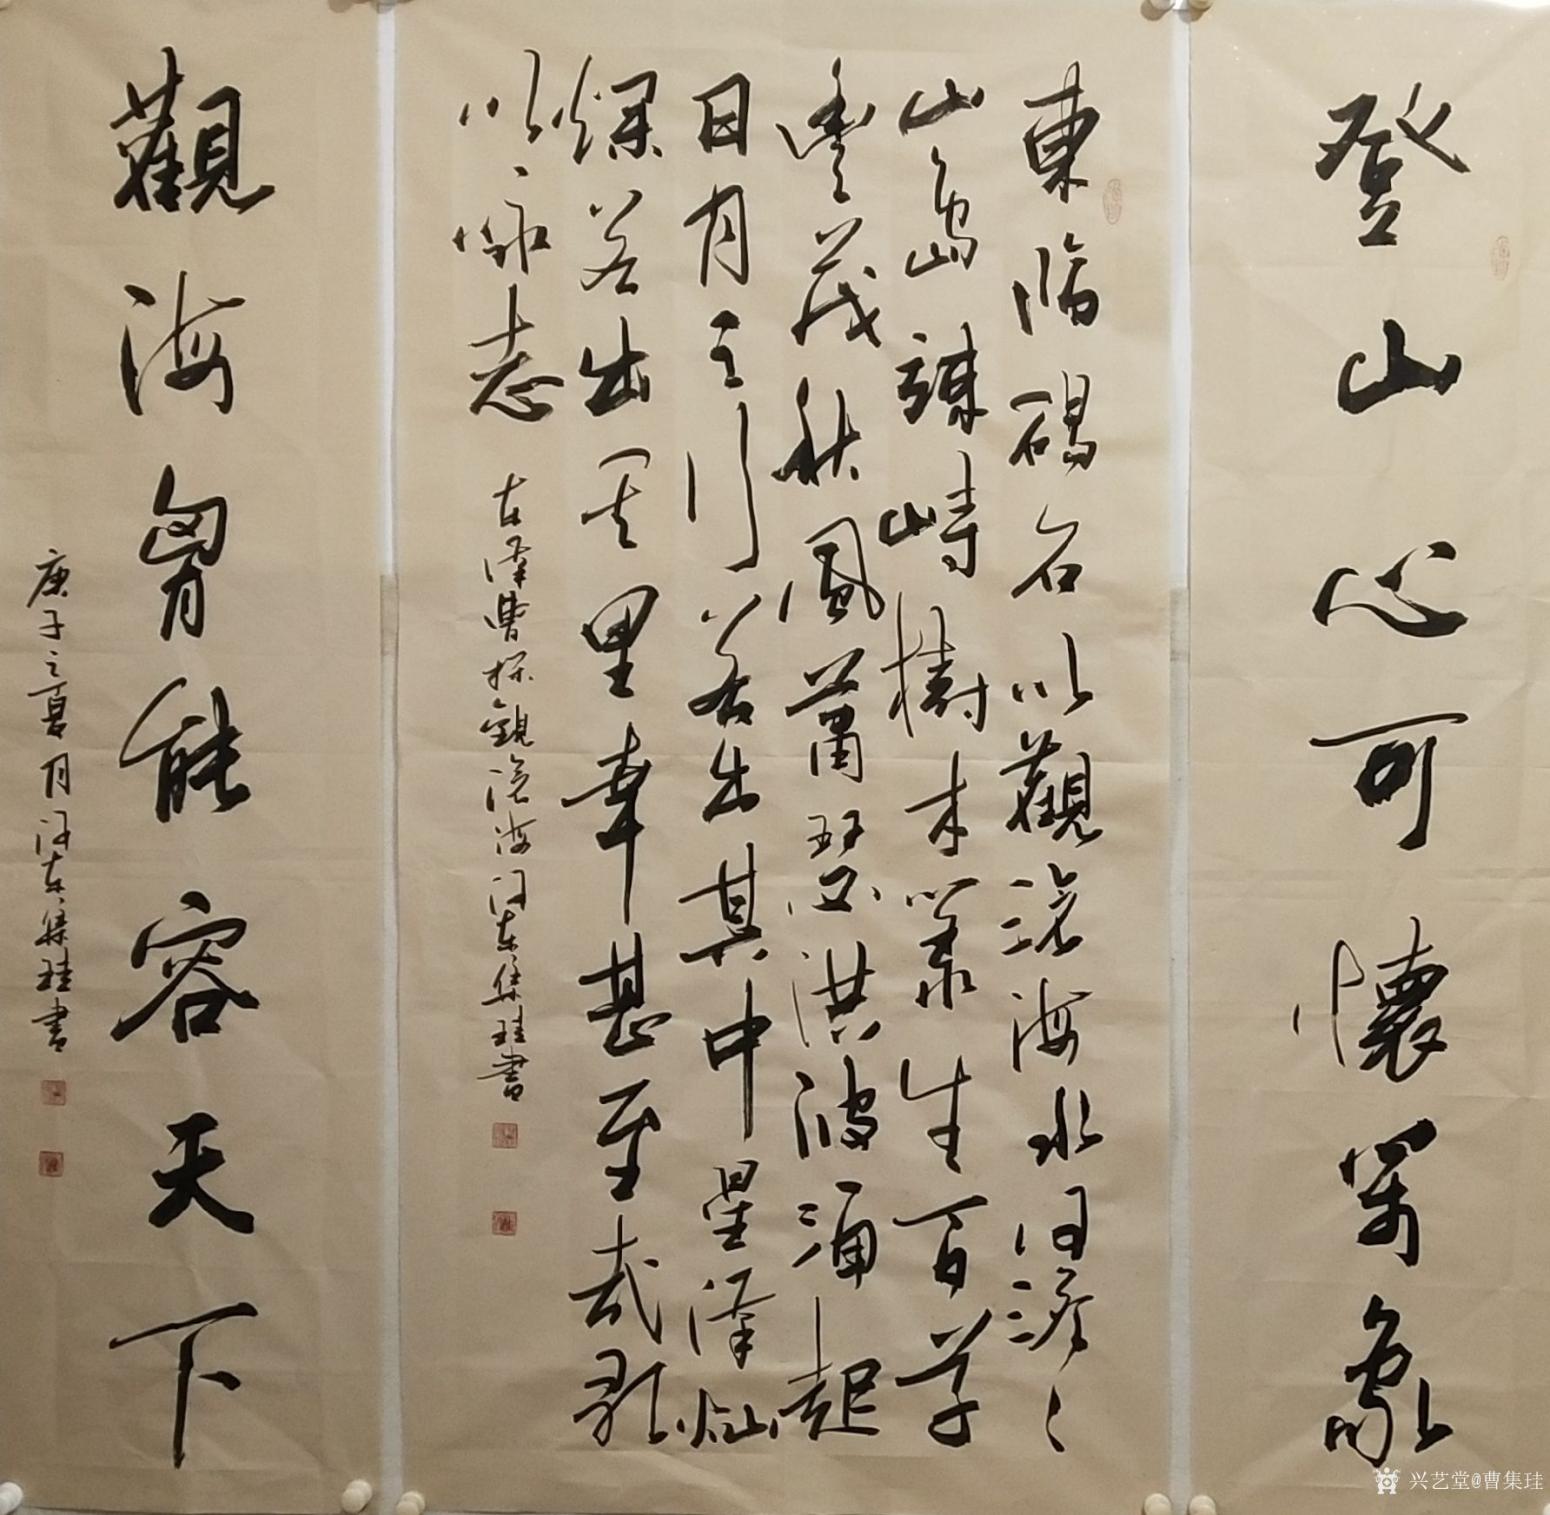 登山心可懷萬象
東臨碣石以觀滄海水何澹〻
山島竦峙樹木叢生百草
豐茂秋風蕭瑟洪波涌起
日月之行若出其中星漢灿
爛若出其里幸甚至哉歌
以詠志
右漢曹操觀滄海河東集珪書
觀海胷能容天下
庚子之夏月河東集珪書
兴艺堂@曹集珪